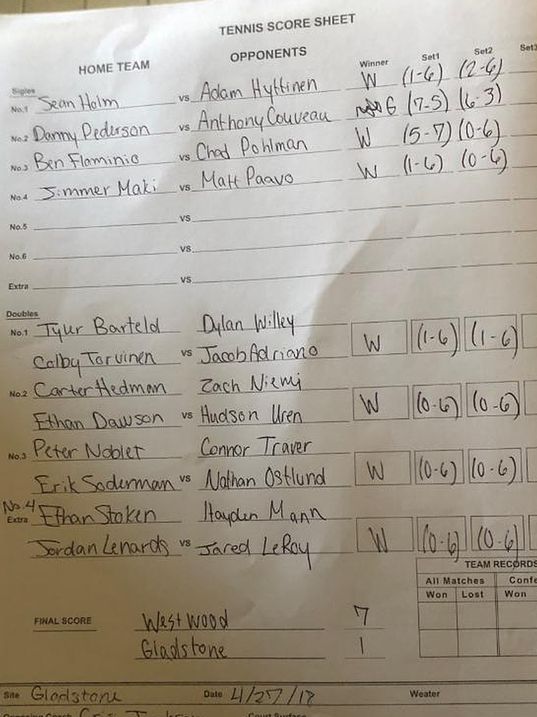 TENNIS SCORE SHEET
HOME TEAM OPPONENTS Winner Set1 Set2 Set3
Sigles
No.1 Sean Holm vs Adam Hyttinen W (1-6) (2-6)
No.2 Danny Pederson vs Anthony Couveau G (7-5) (6-3)
No.3 Ben Flaminio vs Chad Pohlman W (5-7) (0-6)
No.4 Jimmer Maki vs Matt Paavo W (1-6) (0-6)
No.5 vs
No.6 vs
Extra vs
Doubles
No.1 Tyler Barteld Dylan Willey
Colby Tarvinen vs Jacob Adriano W (1-6) (1-6)
No.2 Carter Hedman Zach Niemi
Ethan Dawson vs Hudson Uren W (0-6) (0-6)
No.3 Peter Noblet Connor Traver
Erik Soderman vs Nathan Ostlund W (0-6) (0-6)
No.4
Extra Ethan Stoken Hayden Mann
Jordan Lenards vs Jared LeRoy W (0-6) (0-6)
TEAM RECORDS
All Matches Confe
Won Lost Won
FINAL SCORE Westwood 7
Gladstone 1
Site Gladstone Date 4/27/18 Weater